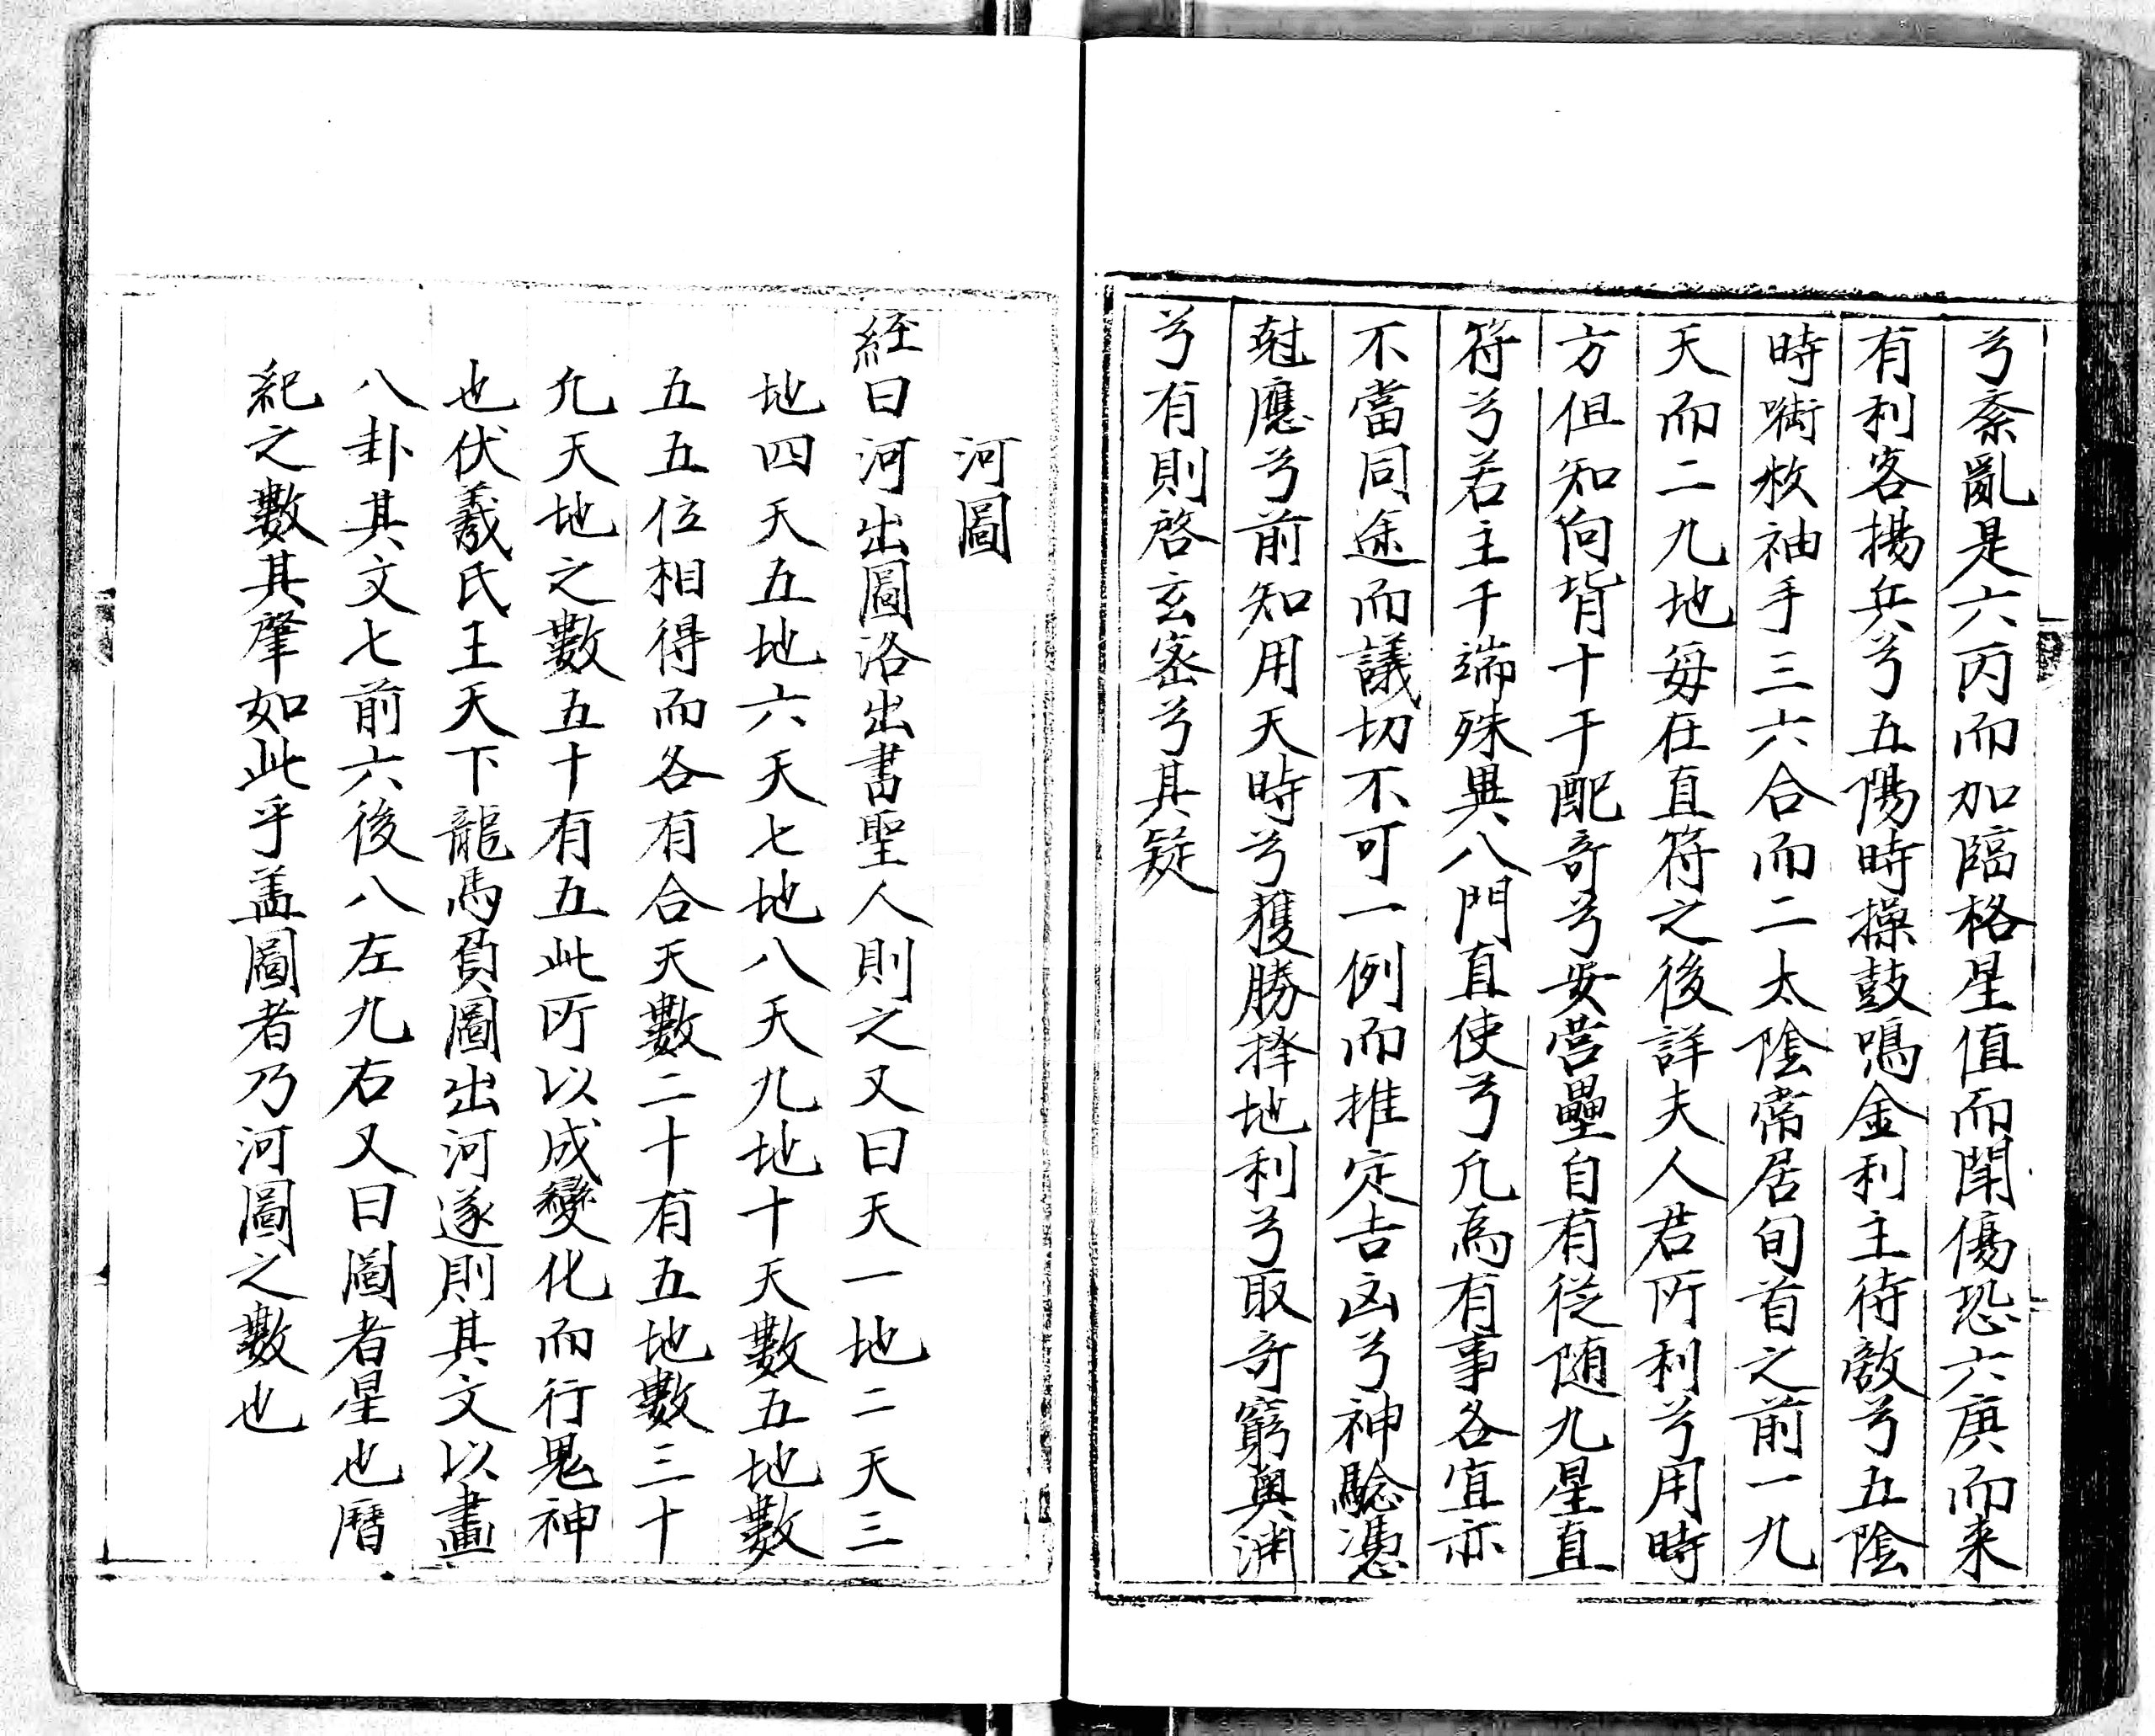 兮紊亂是六丙而加臨格星值而閗傷恐六庚而来
有利客揚兵兮五陽時操鼓鳴金利主待敵兮五陰
時㗸枚袖手三六合而二太陰常居旬首之前一九
天而二九地每在直符之後詳夫人君所利兮用時
方但知向背十干配奇兮安营壘自有從随九星直
符兮若主千端殊異八門直使兮凢為有事各宜亦
不當同途而議切不可一例而推定吉凶兮神驗憑
尅應兮前知用天時兮獲勝择地利兮取奇窮奥渊
兮有則啓玄密兮其疑
河圖
経曰河出圖洛出書聖人則之又曰天一地二天三
地四天五地六天七地八天九地十天數五地數
五五位相得而各有合天數二十有五地數三十
凢天地之數五十有五此所以成變化而行鬼神
也伏羲氏王天下龍馬負圖出河遂則其文以畫
八卦其文七前六後八左九右又曰圖者星也曆
紀之數其肇如此乎盖圖者乃河圖之數也